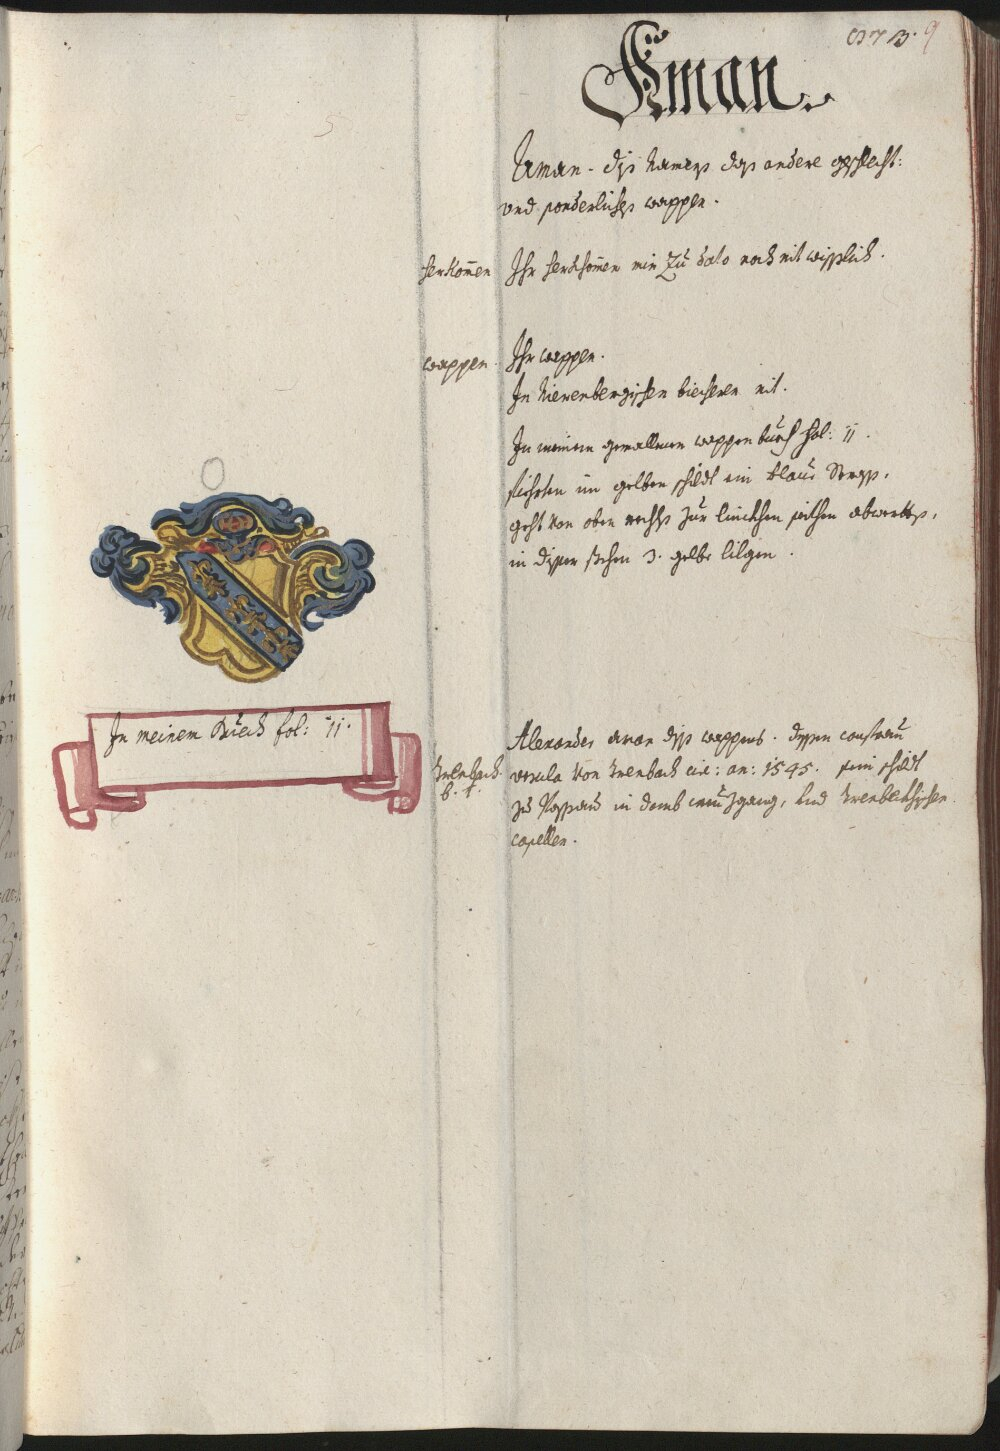 Äman.
Äman. diß Namenß daß andere geschlecht:
und sonderlicheß wappen.
herkomen
Ihr herkhomen mir Zu dato noch nit wisslich.
wappen.
Ihr wappen.
In Nierenbergischen biecheren nit.
In meinem gemallenen wappenbuech fol: 11.
fiehrten im gelben schildt ein blaue Strass,
geht von oben rechts zur linckhen seithen abwerts,
in diser stehen 3. gelbe lilgen.
In meinem Buech fol: 11.
Alexander aman diß wappens. dessen
ursula von Trenback cir: an: 1545. sein schildt
Trenback.
zu Passau in domb creuzgang, und Trenbeckhischen
capellen.